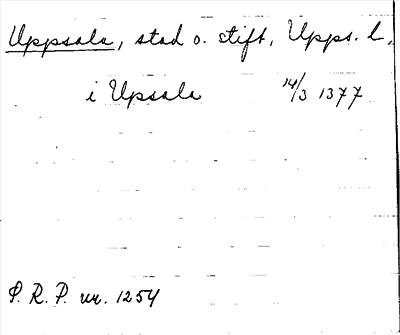 Uppsala, stad o. stift, Upps. l.
i Upsala 14/3 1377
S. R. P. nr. 1254